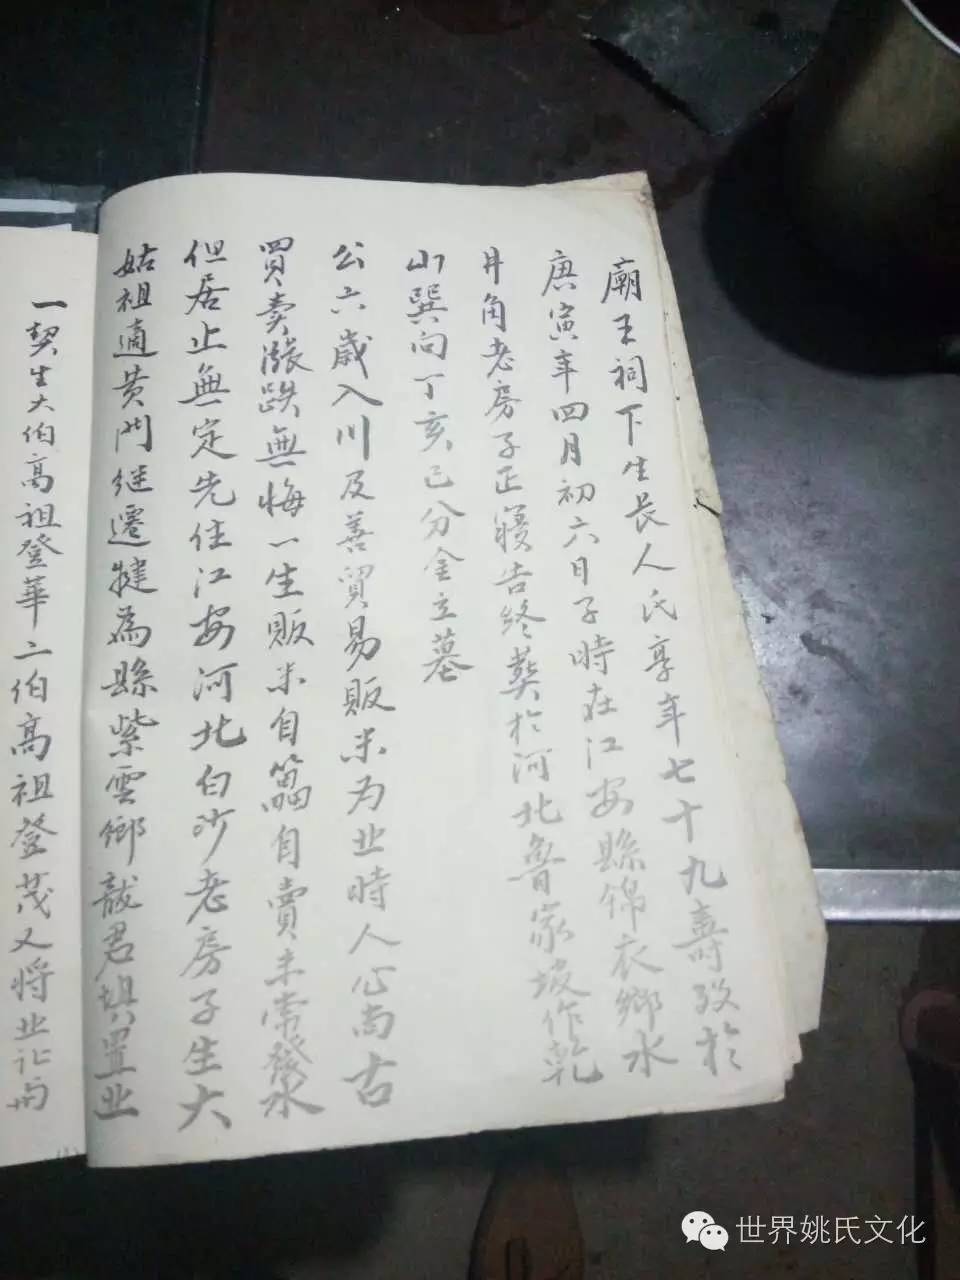 廟王祠下生長人氏享年七十九壽歿於
庚寅年四月初六日子時在江安縣錦衣鄉水
井角老房子正寢告終葬於河北魯家坡作乾
山巽向丁亥己分金立墓
公六歲入川及善貿易販米为业時人心尚古
買卖漲跌無悔一生販米自自賣未常發水
但居止無定先住江安河北白沙老房子生大
姑祖適黄門继遷犍為縣紫雲鄉敔君垻置业
一契生大伯高祖登華二伯高祖登茂又将业让与
世界姚氏文化